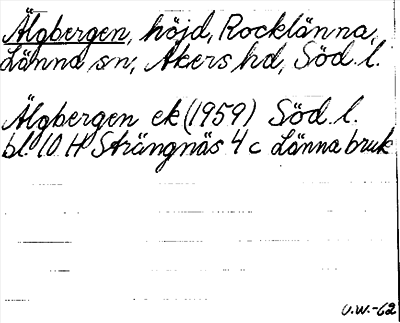 Älgbergen, höjd, Rocklänna,
Länna sn, Åkers hd, Söd. l.
Älgbergen ek (1959) Söd. l.
bl. 10 H Strängnäs 4 c Länna bruk
U.W.-62